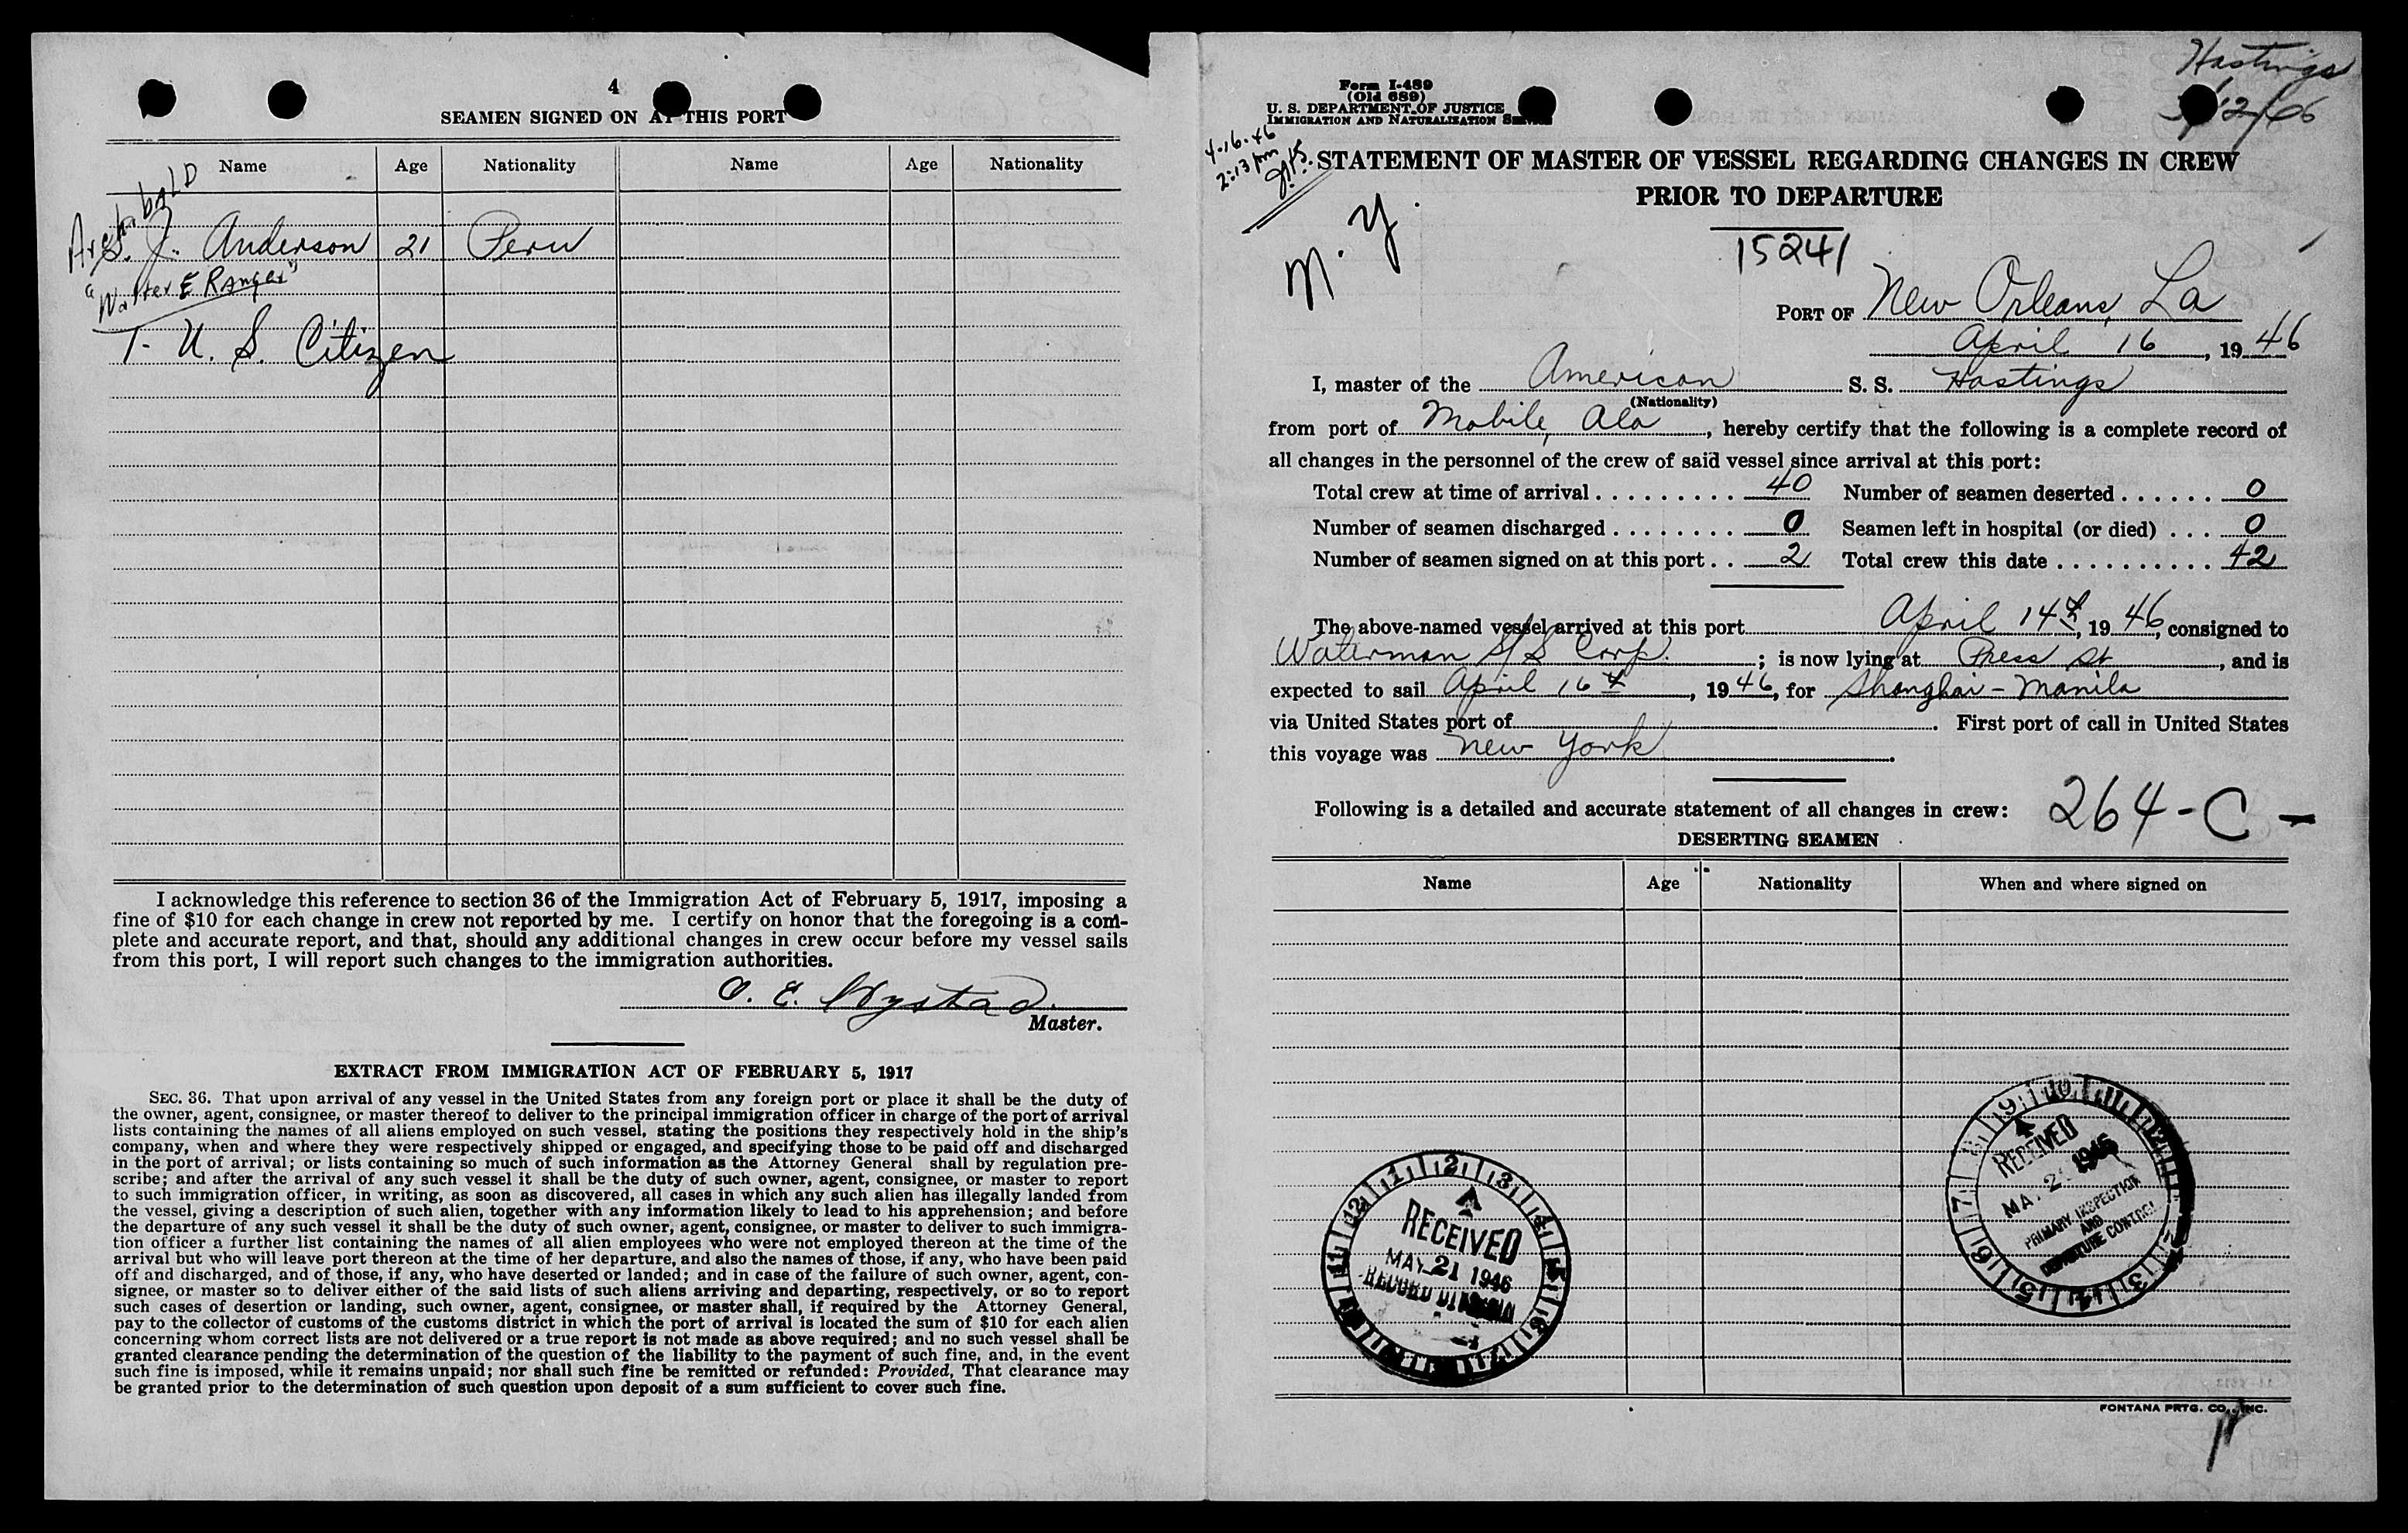 4
SEAMEN SIGNED ON AT THIS PORT
Name Age Nationality Name Age Nationality
Archibald
S. J. Anderson 21 Peru
"Walter E Ranger"
1- U. S. Citizen
I acknowledge this reference to section 36 of the Immigration Act of February 5, 1917, imposing a
fine of $10 for each change in crew not reported by me. I certify on honor that the foregoing is a com-
plete and accurate report, and that, should any additional changes in crew occur before my vessel sails
from this port, I will report such changes to the immigration authorities.
O. E. Wystad
Master.
EXTRACT FROM IMMIGRATION ACT OF FEBRUARY 5, 1917
SEC. 36. That upon arrival of any vessel in the United States from any foreign port or place it shall be the duty of
the owner, agent, consignee, or master thereof to deliver to the principal immigration officer in charge of the port of arrival
lists containing the names of all aliens employed on such vessel, stating the positions they respectively hold in the ship's
company, when and where they were respectively shipped or engaged, and specifying those to be paid off and discharged
in the port of arrival; or lists containing so much of such information as the Attorney General shall by regulation pre-
scribe; and after the arrival of any such vessel it shall be the duty of such owner, agent, consignee, or master to report
to such immigration officer, in writing, as soon as discovered, all cases in which any such alien has illegally landed from
the vessel, giving a description of such alien, together with any information likely to lead to his apprehension; and before
the departure of any such vessel it shall be the duty of such owner, agent, consignee, or master to deliver to such immigra-
tion officer a further list containing the names of all alien employees who were not employed thereon at the time of the
arrival but who will leave port thereon at the time of her departure, and also the names of those, if any, who have been paid
off and discharged, and of those, if any, who have deserted or landed; and in case of the failure of such owner, agent, con-
signee, or master so to deliver either of the said lists of such aliens arriving and departing, respectively, or so to report
such cases of desertion or landing, such owner, agent, consignee, or master shall, if required by the Attorney General,
pay to the collector of customs of the customs district in which the port of arrival is located the sum of $10 for each alien
concerning whom correct lists are not delivered or a true report is not made as above required; and no such vessel shall be
granted clearance pending the determination of the question of the liability to the payment of such fine, and, in the event
such fine is imposed, while it remains unpaid; nor shall such fine be remitted or refunded: Provided, That clearance may
be granted prior to the determination of such question upon deposit of a sum sufficient to cover such fine.
Hastings
Form I-489
(Old 689)
U. S. DEPARTMENT OF JUSTICE
IMMIGRATION AND NATURALIZATION SERVICE
4-16-46
2:13 pm
STATEMENT OF MASTER OF VESSEL REGARDING CHANGES IN CREW
PRIOR TO DEPARTURE
15241
PORT OF New Orleans, La
April 16, 1946
I, master of the American S. S. Hastings
(Nationality)
from port of Mobile, Ala, hereby certify that the following is a complete record of
all changes in the personnel of the crew of said vessel since arrival at this port:
Total crew at time of arrival 40 Number of seamen deserted 0
Number of seamen discharged 0 Seamen left in hospital (or died) 0
Number of seamen signed on at this port 2 Total crew this date 42
The above-named vessel arrived at this port April 14th, 1946, consigned to
Waterman S/S Corp.; is now lying at Press St, and is
expected to sail April 16th, 1946, for Shanghai - Manila
via United States port of. First port of call in United States
this voyage was New York.
Following is a detailed and accurate statement of all changes in crew: 264-C-
DESERTING SEAMEN
Name Age Nationality When and where signed on
RECEIVED
MAY 21 1946
RECORD DIVISION
RECEIVED
MAY 2 1946
PRIMARY INSPECTION
AND
DEPARTURE CONTROL
FONTANA PRTG. CO., INC.